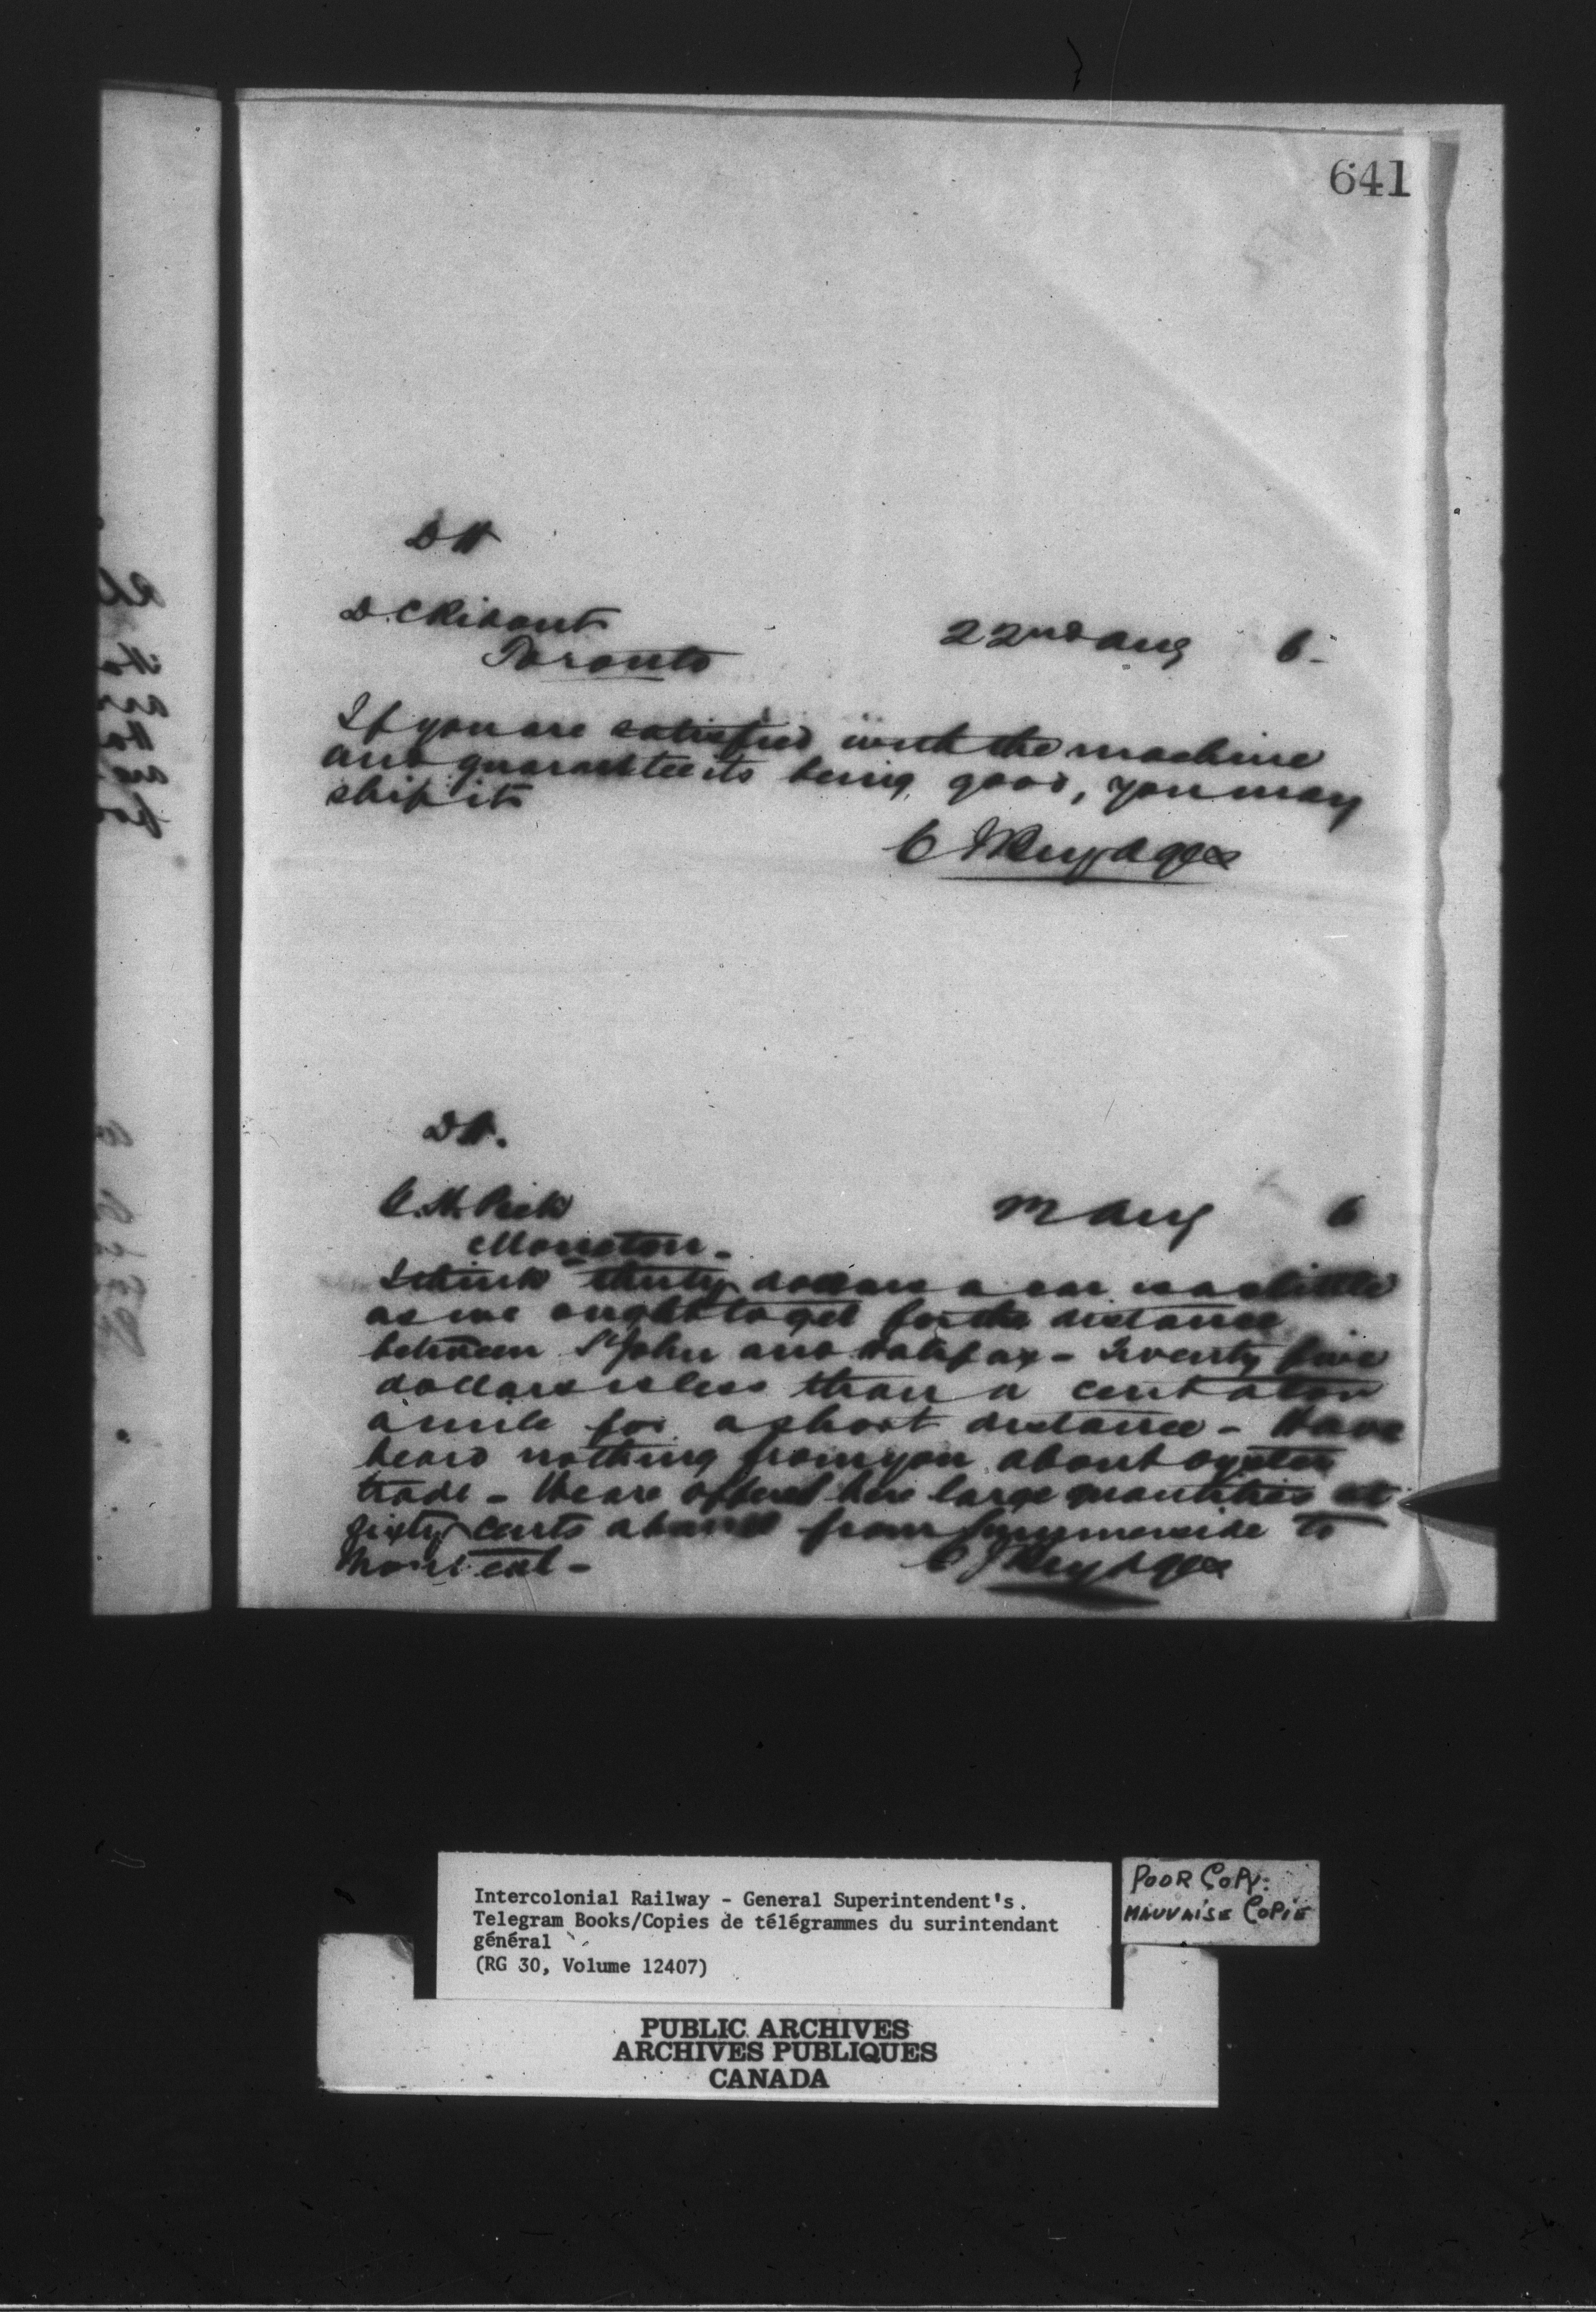 641
DH
D. C Ridout
Toronto
22nd Aug 6-
If you are satisfied with the machine
and guarantee its being good, you may
ship it
C J Brydges
DH.
Moncton-
Aug 6
I think thirty dollars a car is as little
as we ought to get for the distance
between St John and Halifax - Twenty five
dollars is less than a cent a ton
a mile for a short distance - Have
heard nothing from you about oyster
trade - We are offered here large quantities at
sixty cents a barrel from Summerside to
Montreal -
C J Brydges
Intercolonial Railway - General Superintendent's.
Telegram Books/Copies de télégrammes du surintendant
général
(RG 30, Volume 12407)
POOR COPY.
MAUVAISE COPIE
PUBLIC ARCHIVES
ARCHIVES PUBLIQUES
CANADA